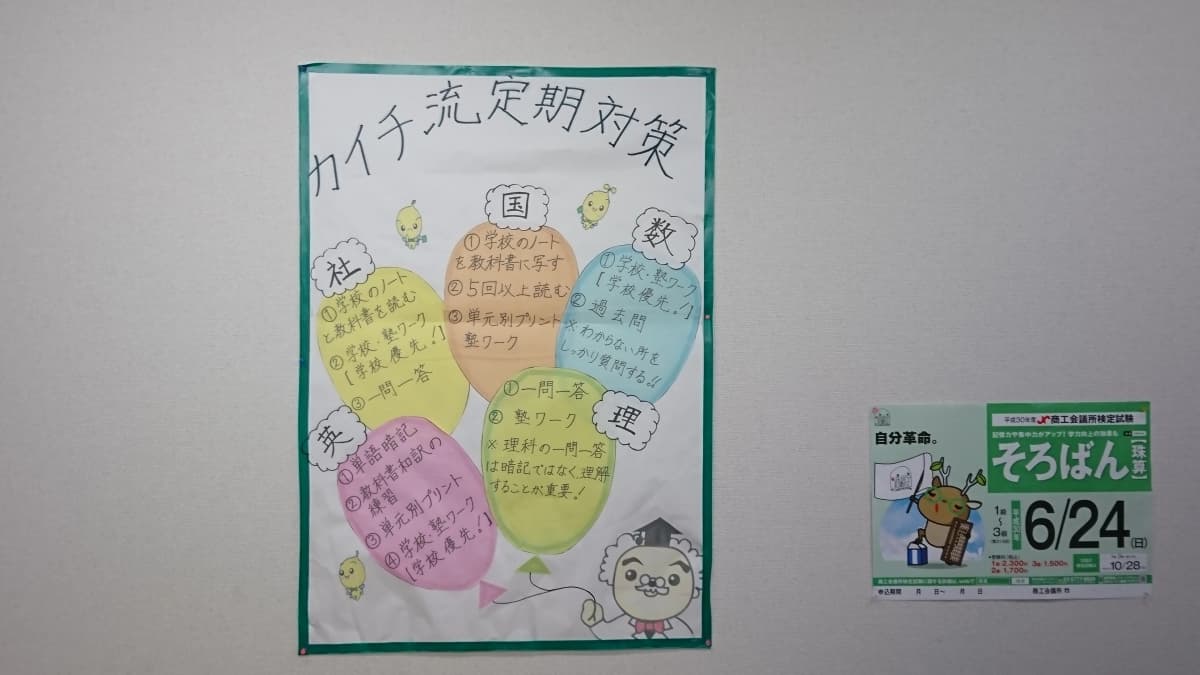 カイチ流定期対策
社
①学校のノート
と教科書を読む
②学校・塾ワーク
【学校優先!】
③一問一答
国
①学校のノート
を教科書に写す
②5回以上読む
③単元別プリント
塾ワーク
数
①学校・塾ワーク
【学校優先!】
②過去問
※わからない所を
しっかり質問する!!
英
①単語暗記
②教科書和訳の
練習
③単元別プリント
④学校・塾ワーク
【学校優先!】
理
①一問一答
②塾ワーク
※理科の一問一答
は暗記ではなく、理解
することが重要!
自分革命。
平成30年度 商工会議所検定試験
記憶力や集中力がアップ!学力向上の効果も
そろばん【珠算】
1級〜3級
6/24(日)
1級 2,300円 3級 1,500円
2級 1,700円
10/28
申込期間 月 日〜 月 日
商工会議所